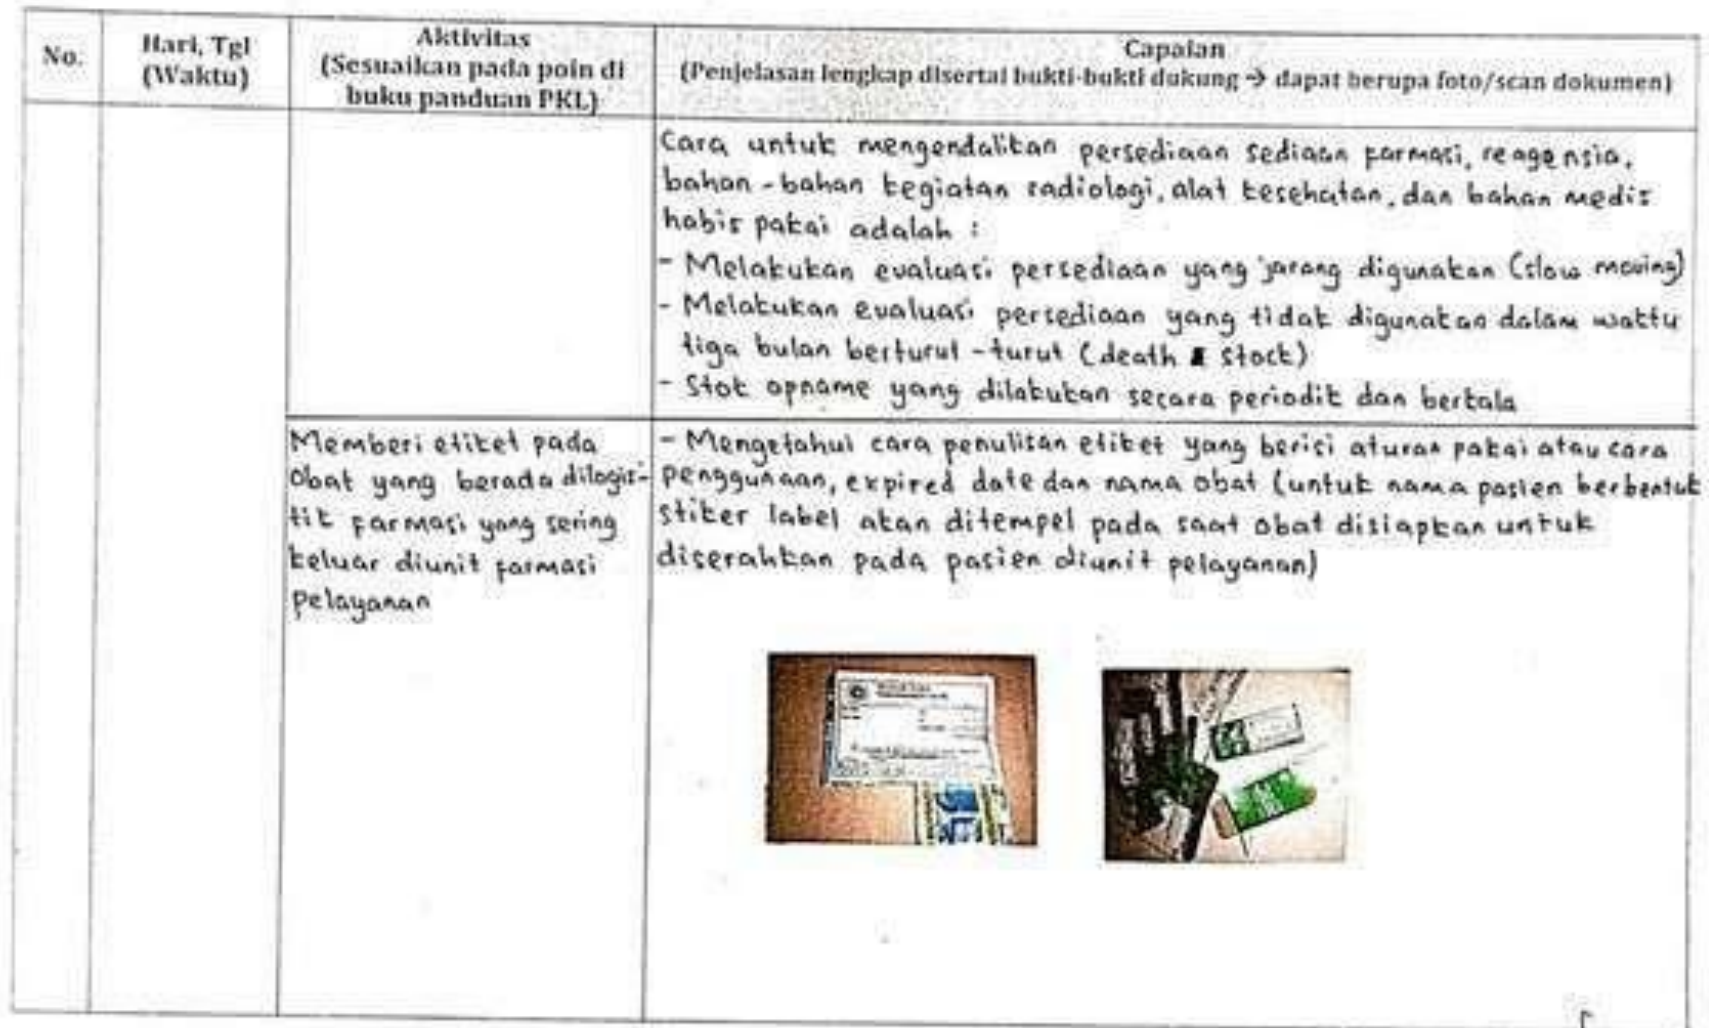 No.
Hari, Tgl
(Waktu)
Aktivitas
(Sesuaikan pada poin di
buku panduan PKL)
Capaian
(Penjelasan lengkap disertai bukti-bukti dukung → dapat berupa foto/scan dokumen)
Cara untuk mengendalikan persediaan sediaan farmasi, reagensia,
bahan-bahan kegiatan radiologi, alat kesehatan, dan bahan medis
habis pakai adalah :
- Melakukan evaluasi persediaan yang jarang digunakan (slow moving)
- Melakukan evaluasi persediaan yang tidak digunakan dalam waktu
tiga bulan berturut-turut (death stock)
- Stok opname yang dilakukan secara periodik dan berkala
Memberi etiket pada
obat yang berada dilogis-
tik farmasi yang sering
keluar diunit farmasi
pelayanan
- Mengetahui cara penulisan etiket yang berisi aturan pakai atau cara
penggunaan, expired date dan nama obat (untuk nama pasien berbentuk
stiker label akan ditempel pada saat obat disiapkan untuk
diserahkan pada pasien diunit pelayanan)